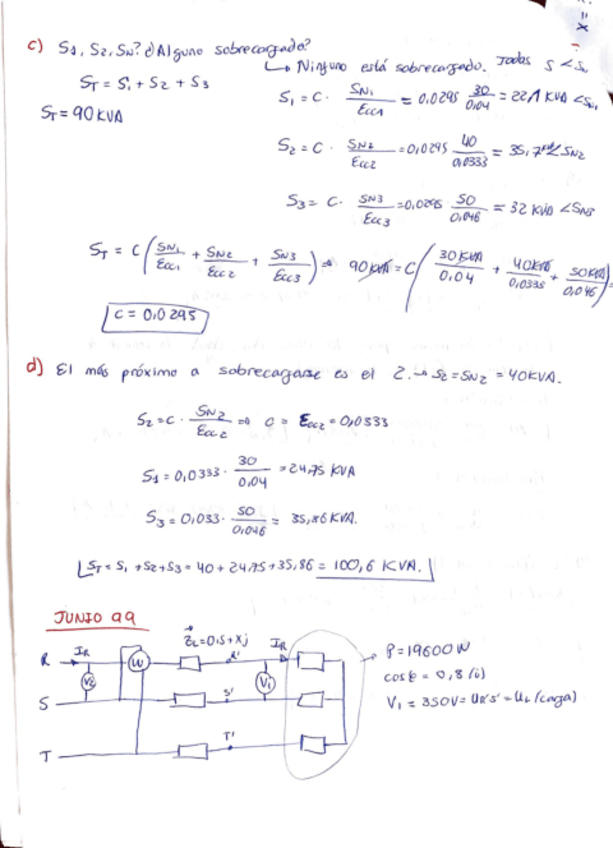 c) S1, S2, SN? ¿Alguno sobrecargado?
↳ Ninguno está sobrecargado. Todas S < Sn
ST = S1 + S2 + S3
ST = 90 KVA
S1 = C · SN1/Ecc1 = 0.0295 30/0.04 = 22,1 KVA < SN1
S2 = C · SN2/Ecc2 = 0,0295 40/0,0333 = 35,7 < SN2
S3 = C · SN3/Ecc3 = 0,0295 · 50/0,046 = 32 KVA < SN3
ST = C (SN1/Ecc1 + SN2/Ecc2 + SN3/Ecc3) ⇒ 90 KVA = C (30 KVA/0.04 + 40 KVA/0,0333 + 50 KVA/0,046)
C = 0,0295
d) El más próximo a sobrecargarse es el 2. → S2 = SN2 = 40 KVA.
S2 = C · SN2/Ecc2 ⇒ C = Ecc2 = 0,0333
S1 = 0,0333 · 30/0,04 = 24,75 KVA
S3 = 0,033 · 50/0,046 = 35,86 KVA.
ST = S1 + S2 + S3 = 40 + 24,75 + 35,86 = 100,6 KVA.
JUNIO 99
ZL = 0.5 + Xj
R IR W R' IR
V2
S S' V1
T T'
P = 19600 W
cosφ = 0,8 (i)
V1 = 350V = UR'S' = UL (carga)